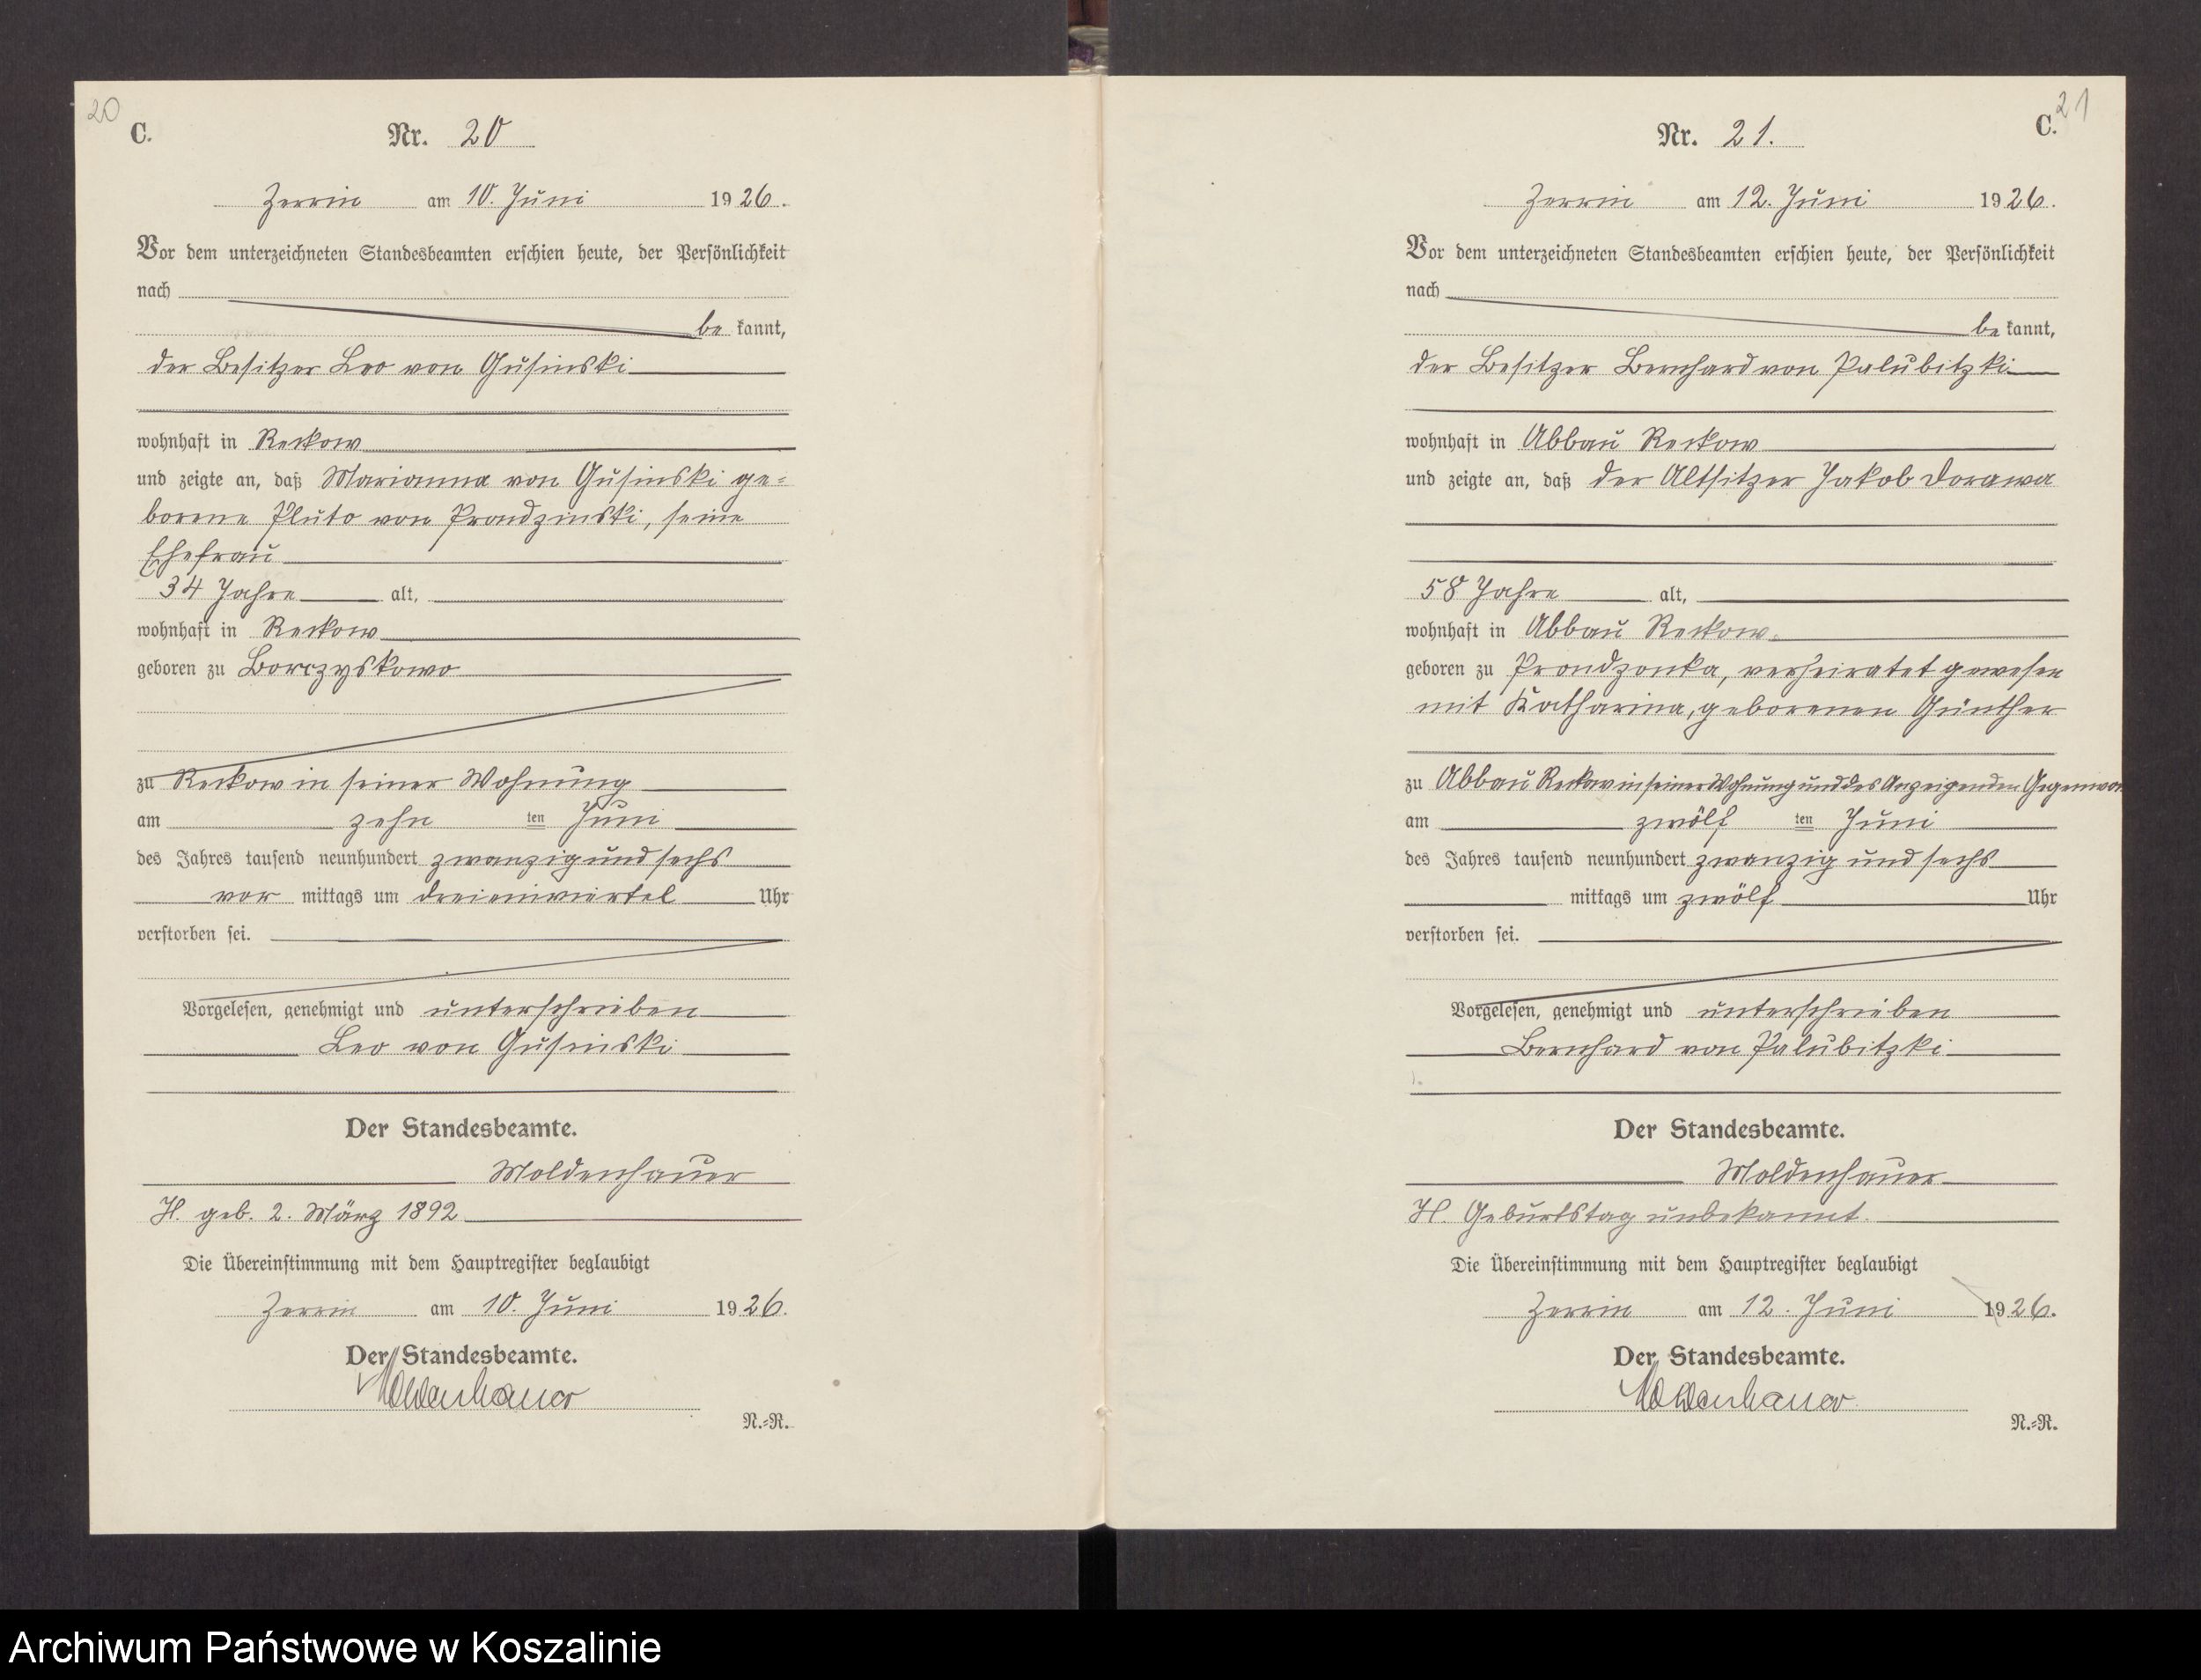 20
C.
Nr. 20
Zerrin am 10. Juni 1926.
Vor dem unterzeichneten Standesbeamten erschien heute, der Persönlichkeit
nach
be kannt,
der Besitzer Leo von Gusinski
wohnhaft in Reckow
und zeigte an, daß Marianna von Gusinski ge=
borene Pluto von Prondzinski, seine
Ehefrau
34 Jahre alt,
wohnhaft in Reckow
geboren zu Borczyskowo
zu Reckow in seiner Wohnung
am zehn ten Juni
des Jahres tausend neunhundert zwanzig und sechs
vor mittags um dreieinviertel Uhr
verstorben sei.
Vorgelesen, genehmigt und unterschrieben
Leo von Gusinski
Der Standesbeamte.
Moldenhauer
H. geb. 2. März 1892
Die Übereinstimmung mit dem Hauptregister beglaubigt
Zerrin am 10. Juni 1926.
Der Standesbeamte.
Moldenhauer
N.=R.
21
C.
Nr. 21.
Zerrin am 12. Juni 1926.
Vor dem unterzeichneten Standesbeamten erschien heute, der Persönlichkeit
nach
be kannt,
der Besitzer Bernhard von Palubitzki
wohnhaft in Abbau Reckow
und zeigte an, daß der Altsitzer Jakob Dorawa
58 Jahre alt,
wohnhaft in Abbau Reckow
geboren zu Prondzonka, verheiratet gewesen
mit Katharina, geborenen Günther
zu Abbau Reckow in seiner Wohnung und des Anzeigenden Gegenwar
am zwölf ten Juni
des Jahres tausend neunhundert zwanzig und sechs
mittags um zwölf Uhr
verstorben sei.
Vorgelesen, genehmigt und unterschrieben
Bernhard von Palubitzki
Der Standesbeamte.
Moldenhauer
H. Geburtstag unbekannt.
Die Übereinstimmung mit dem Hauptregister beglaubigt
Zerrin am 12. Juni 1926.
Der Standesbeamte.
Moldenhauer
N.=R.
Archiwum Państwowe w Koszalinie